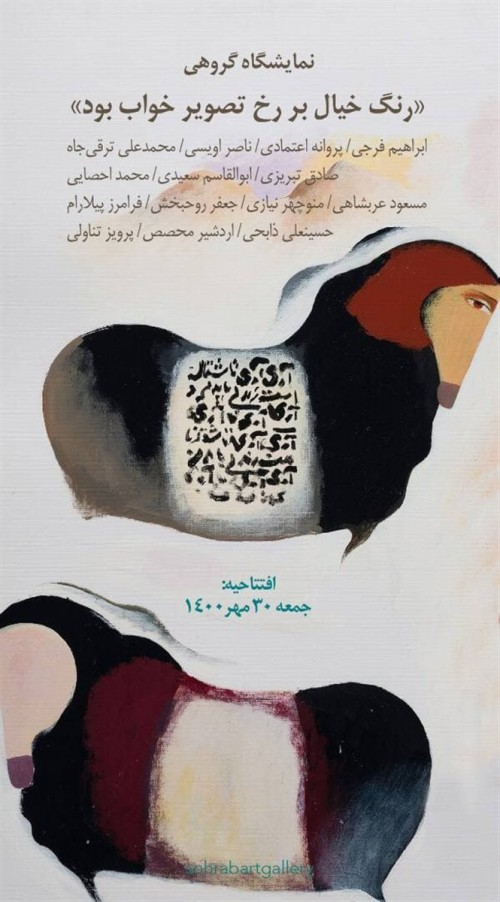 نمایشگاه گروهی
«رنگ خیال بر رخ تصویر خواب بود»
ابراهیم فرجی/ پروانه اعتمادی/ ناصر اویسی/ محمدعلی ترقی‌جاه
صادق تبریزی/ ابوالقاسم سعیدی/ محمد احصایی
مسعود عربشاهی/ منوچهر نیازی/ جعفر روحبخش/ فرامرز پیلارام
حسینعلی ذابحی/ اردشیر محصص/ پرویز تناولی
افتتاحیه:
جمعه ۳۰ مهر ۱٤۰۰
sohrabartgallery